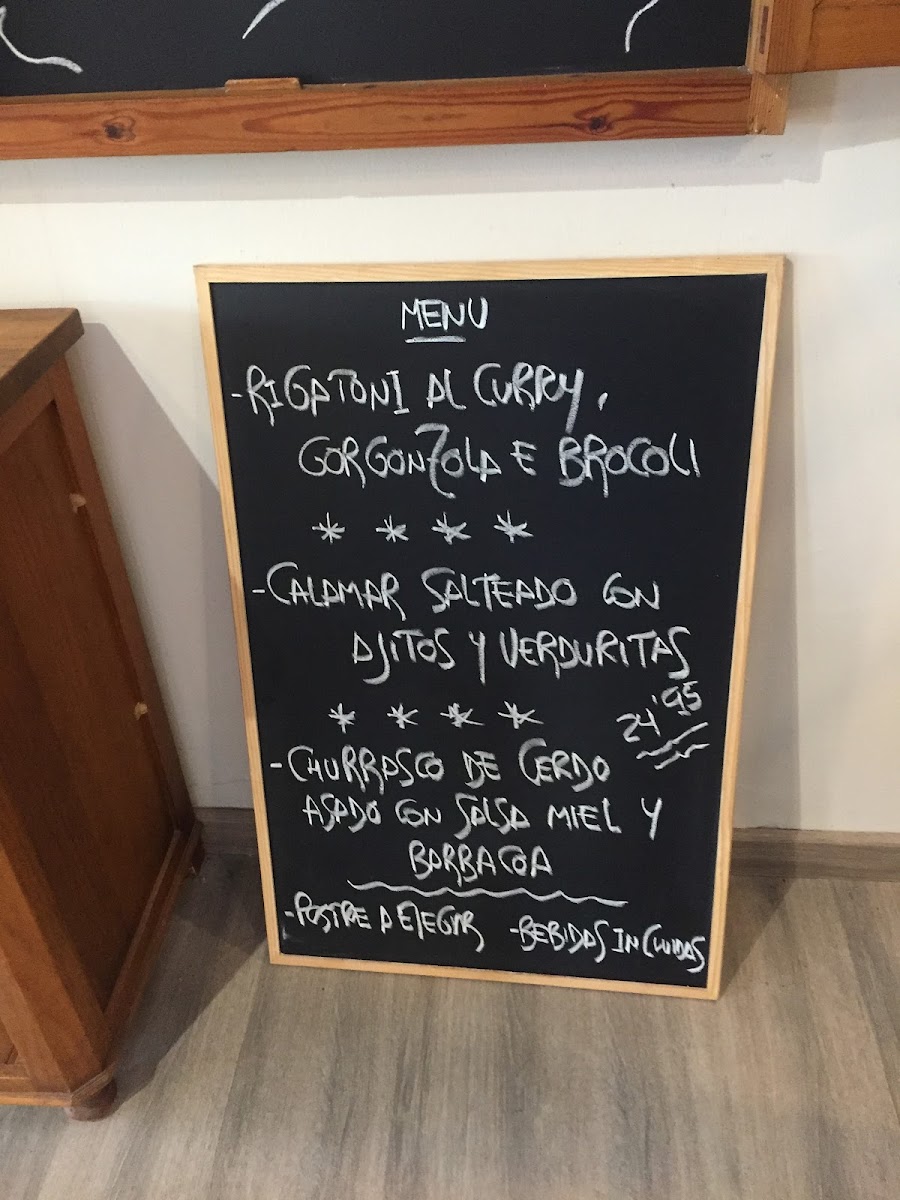 MENU
-RIGATONI AL CURRY,
GORGONZOLA E BROCOLI
* * * *
-CALAMAR SALTEADO CON
AJITOS Y VERDURITAS
* * * *
24'95
-CHURRASCO DE CERDO
ASADO CON SALSA MIEL Y
BARBACOA
-POSTRE A ELEGIR -BEBIDAS INCLUIDAS